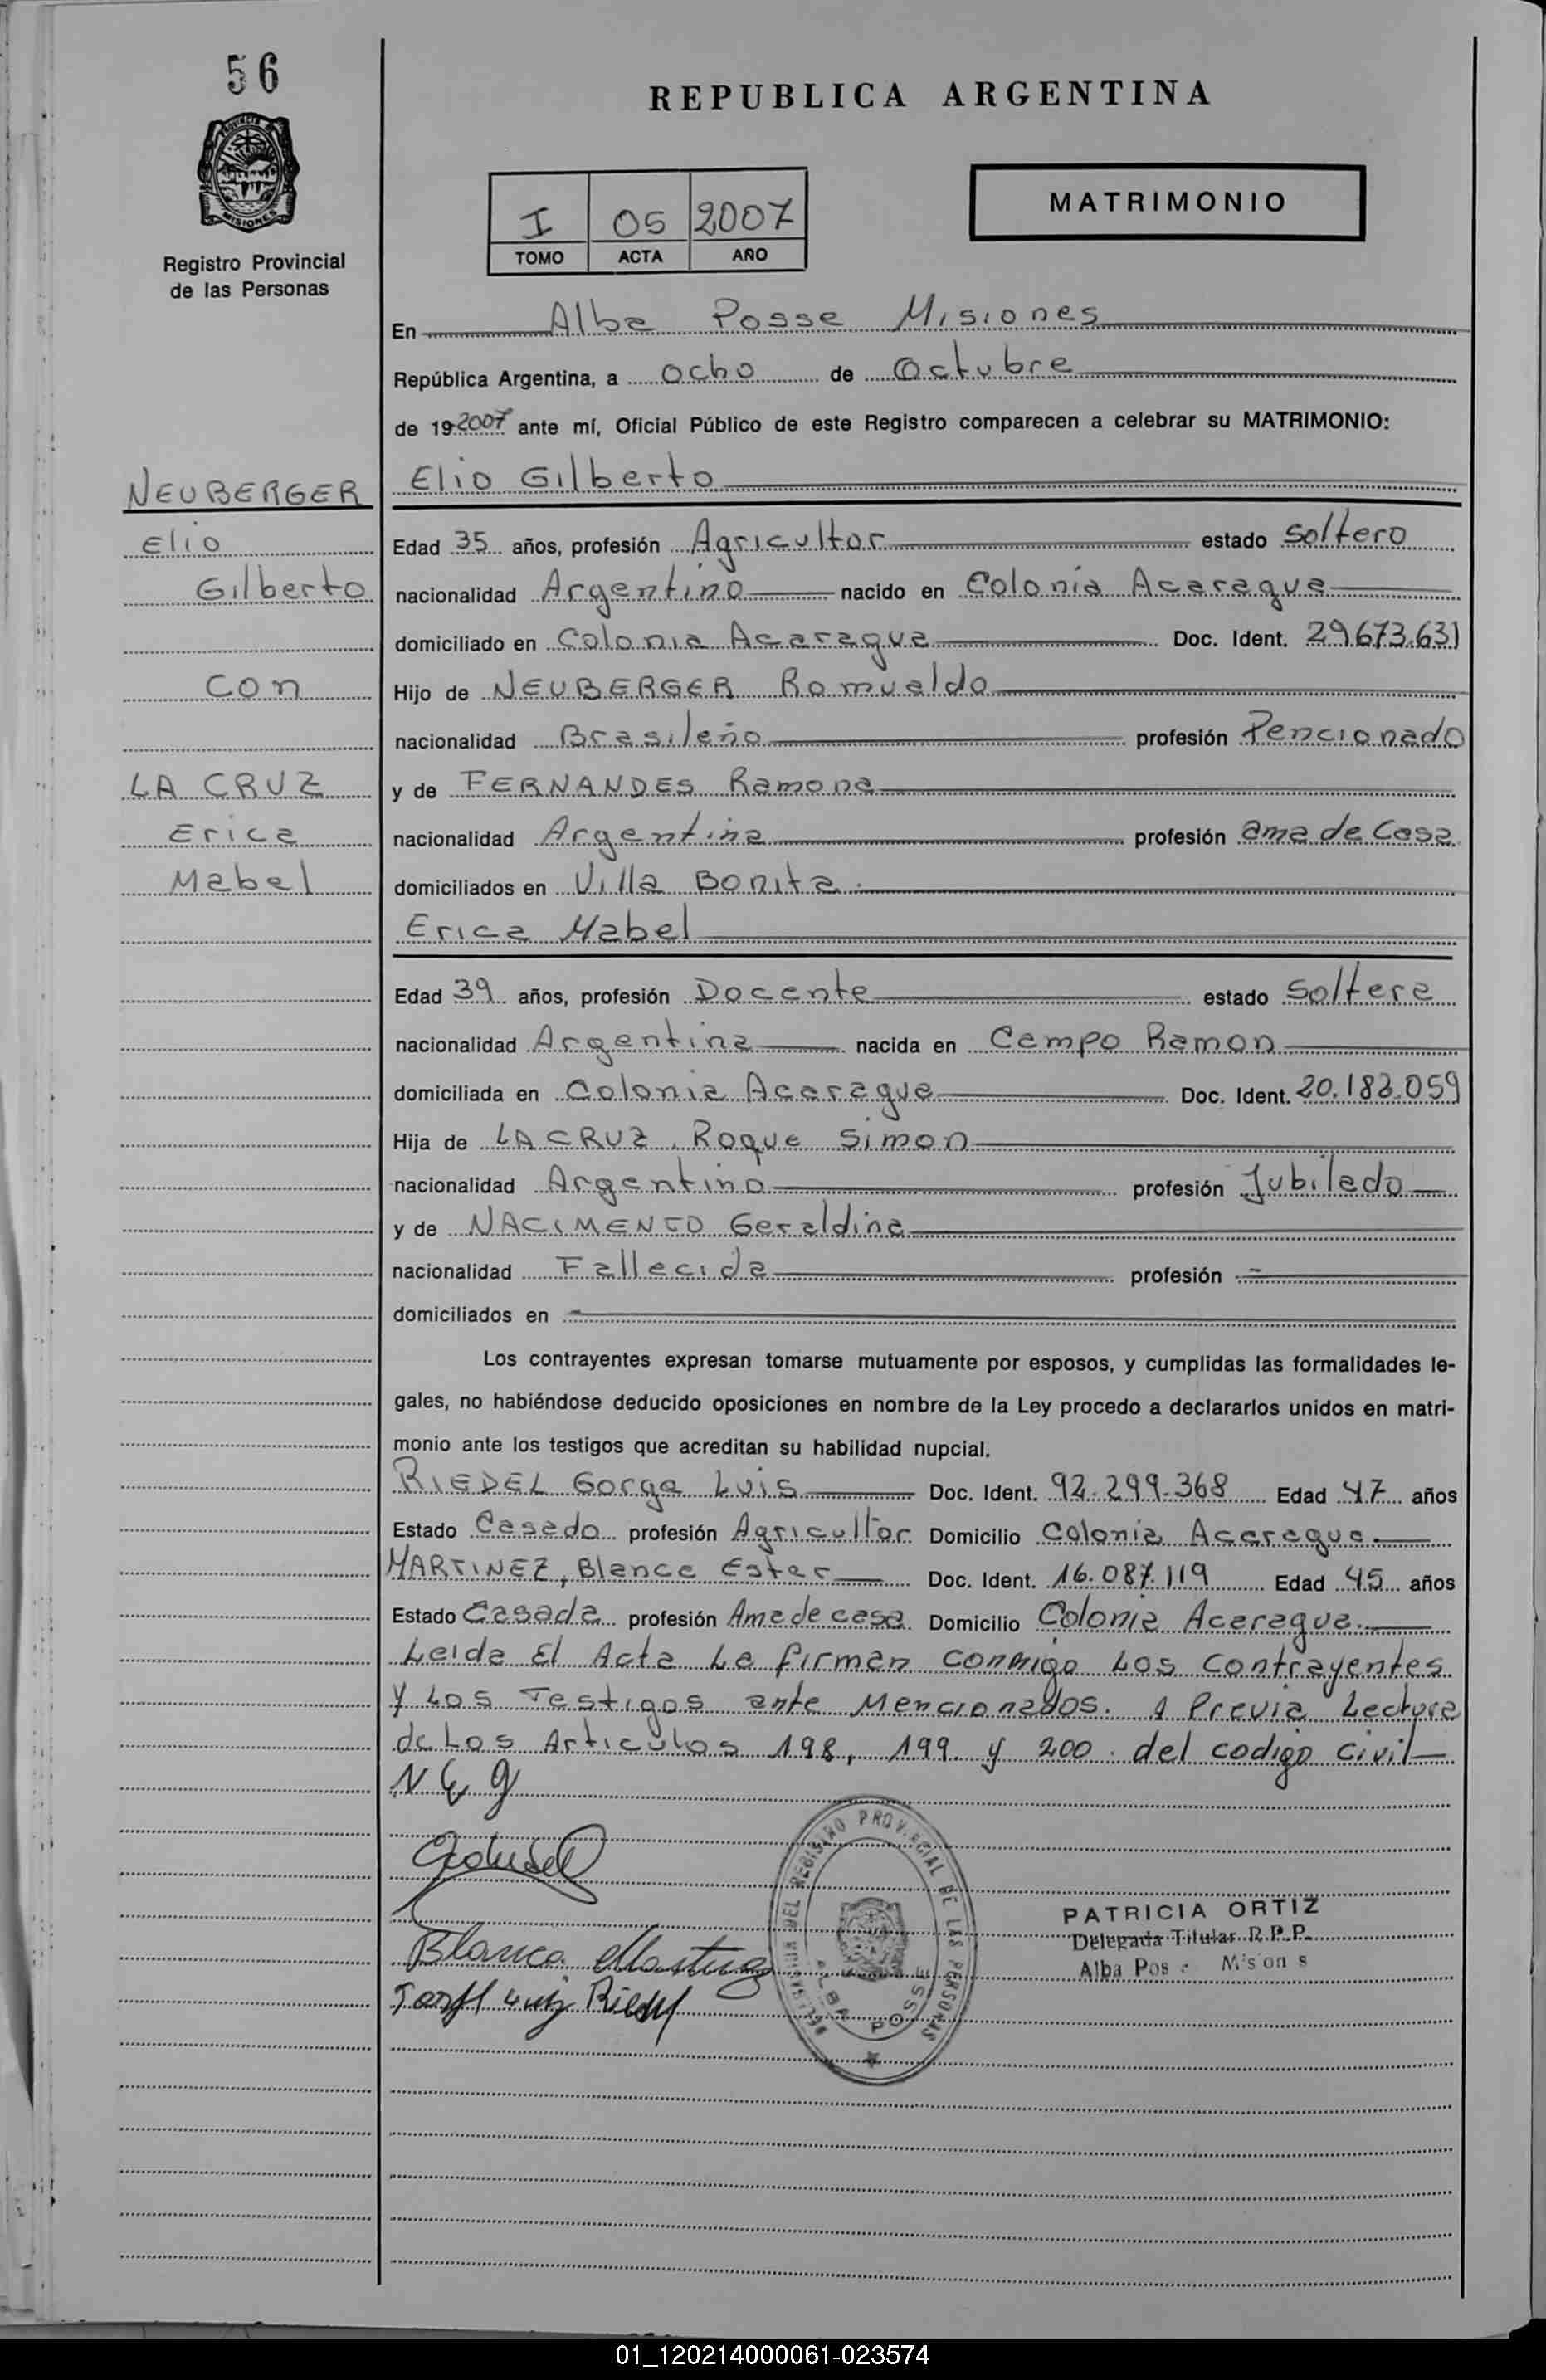 56
REPUBLICA ARGENTINA
PROVINCIA DE
MISIONES
Registro Provincial
de las Personas
I 05 2007
TOMO ACTA AÑO
MATRIMONIO
En Alba Posse Misiones
República Argentina, a ocho de Octubre
de 19 2007 ante mí, Oficial Público de este Registro comparecen a celebrar su MATRIMONIO:
NEUBERGER
Elio
Gilberto
con
LA CRUZ
Erica
Mabel
Elio Gilberto
Edad 35 años, profesión Agricultor estado soltero
nacionalidad Argentino nacido en Colonia Acaragua
domiciliado en Colonia Acaragua Doc. Ident. 29.673.631
Hijo de NEUBERGER Romualdo
nacionalidad Brasileño profesión Pencionado
y de FERNANDES Ramona
nacionalidad Argentina profesión ama de Casa
domiciliados en Villa Bonita.
Erica Mabel
Edad 39 años, profesión Docente estado soltera
nacionalidad Argentina nacida en Campo Ramon
domiciliada en Colonia Acaragua Doc. Ident. 20.183.059
Hija de LA CRUZ, Roque Simon
nacionalidad Argentino profesión Jubilado
y de NACIMENTO Geraldina
nacionalidad Fallecida profesión =
domiciliados en
Los contrayentes expresan tomarse mutuamente por esposos, y cumplidas las formalidades le-
gales, no habiéndose deducido oposiciones en nombre de la Ley procedo a declararlos unidos en matri-
monio ante los testigos que acreditan su habilidad nupcial.
RIEDEL Gorge Luis Doc. Ident. 92.299.368 Edad 47 años
Estado Casado profesión Agricultor Domicilio Colonia Acaragua.
MARTINEZ, Blanca Ester Doc. Ident. 16.087.119 Edad 45 años
Estado Casada profesión Ama de casa Domicilio Colonia Acaragua.
Leida El Acta La firman conmigo Los contrayentes
y Los Testigos ante Mencionados. Previa Lectura
de Los Articulos 198, 199 y 200. del codigo civil
N E g
Blanca Martinez
Luiz Riedel
DELEGACION DEL REGISTRO PROVINCIAL DE LAS PERSONAS
ALBA POSSE
PATRICIA ORTIZ
Delegada Titular R.P.P.
Alba Pos e Mision s
01_120214000061-023574